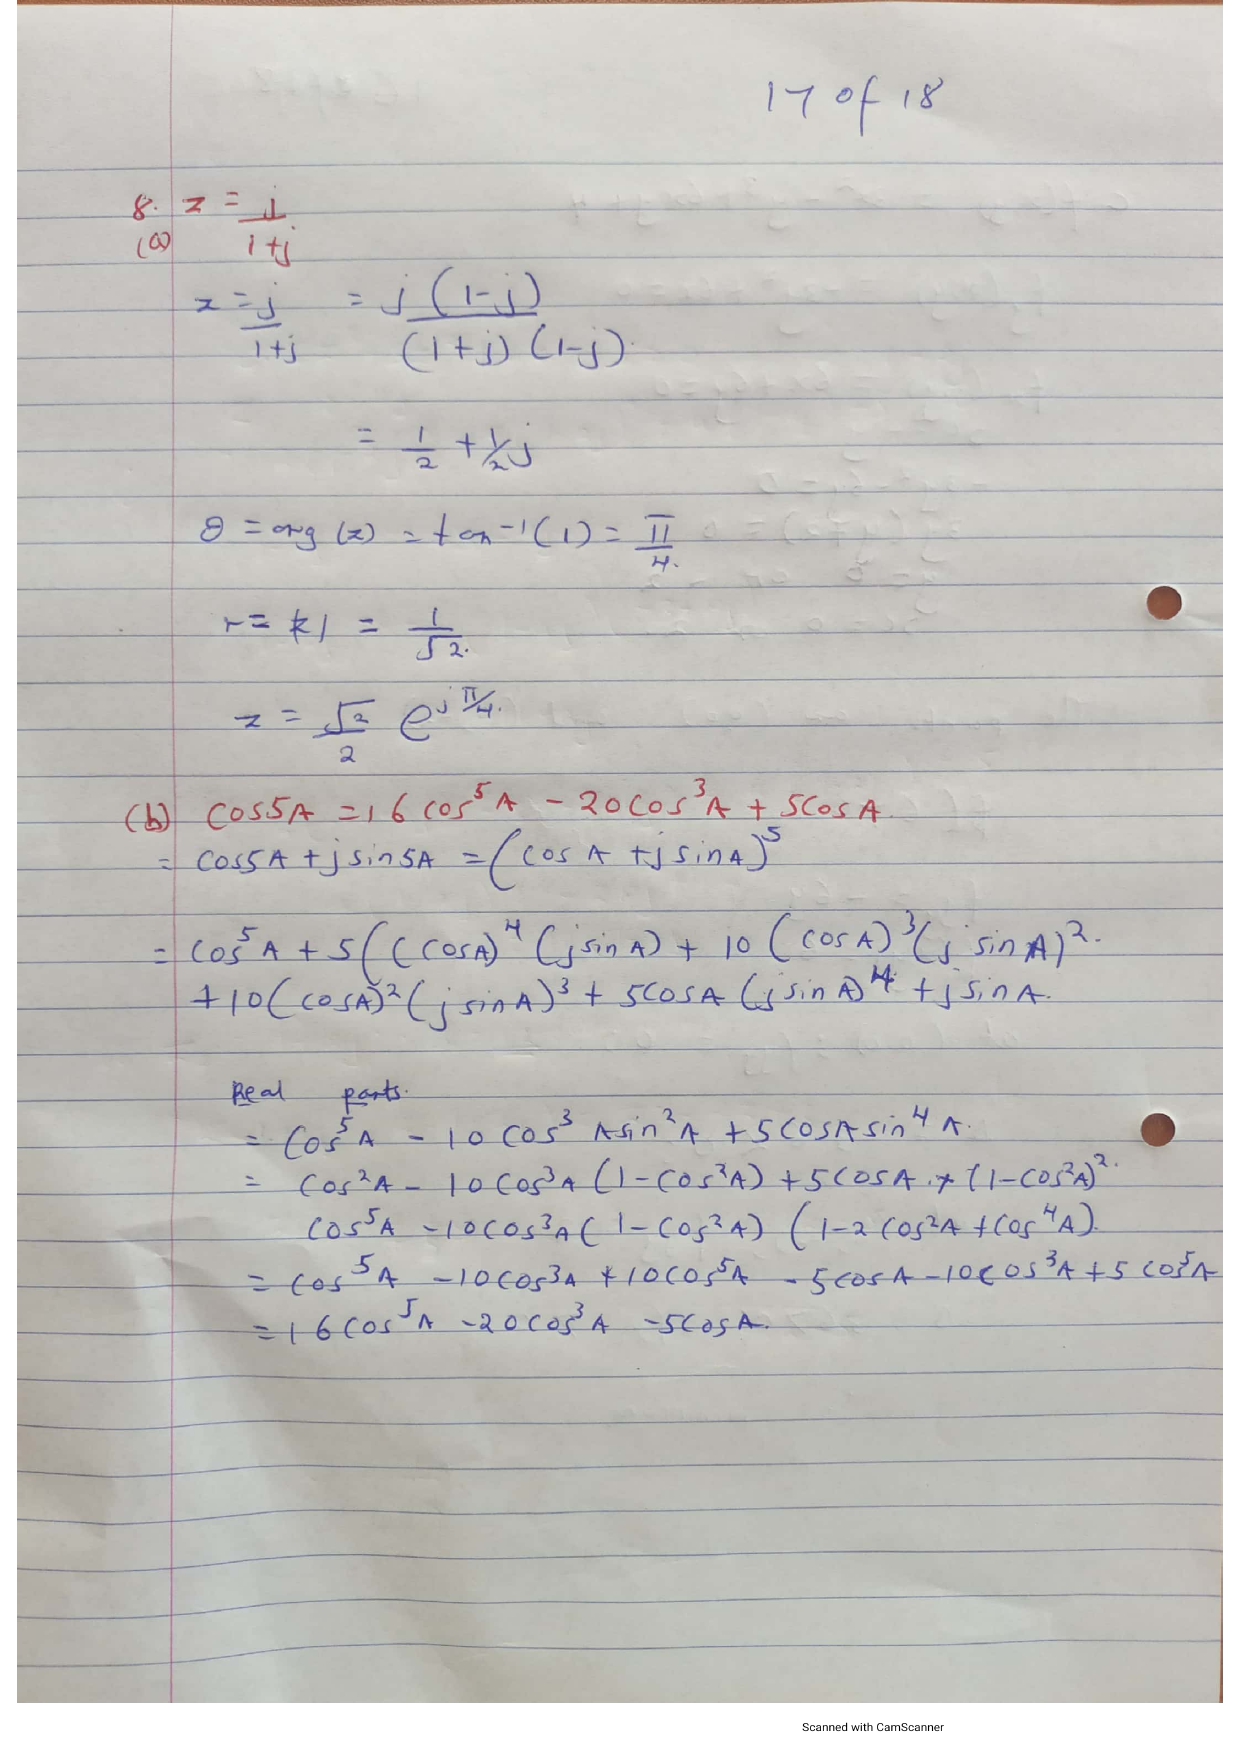 17 of 18
8. z = j/(1+j)
(a)
z = j/(1+j) = j(1-j)/((1+j)(1-j))
= 1/2 + 1/2 j
θ = arg(z) = tan⁻¹(1) = π/4.
r = |z| = 1/√2.
z = √2/2 e^(jπ/4).
(b) cos5A = 16cos⁵A - 20cos³A + 5cosA.
= cos5A + jsin5A = (cosA + jsinA)⁵
= cos⁵A + 5((cosA)⁴(jsinA) + 10(cosA)³(jsinA)².
+10(cosA)²(jsinA)³ + 5cosA(jsinA)⁴ + jsinA.
Real parts.
= cos⁵A - 10cos³Asin²A + 5cosAsin⁴A.
= cos²A - 10cos³A(1-cos²A) + 5cosA.*(1-cos²A)².
cos⁵A - 10cos³A(1-cos²A)(1-2cos²A+cos⁴A).
= cos⁵A - 10cos³A + 10cos⁵A - 5cosA - 10cos³A + 5cos⁵A
= 16cos⁵A - 20cos³A - 5cosA.
Scanned with CamScanner